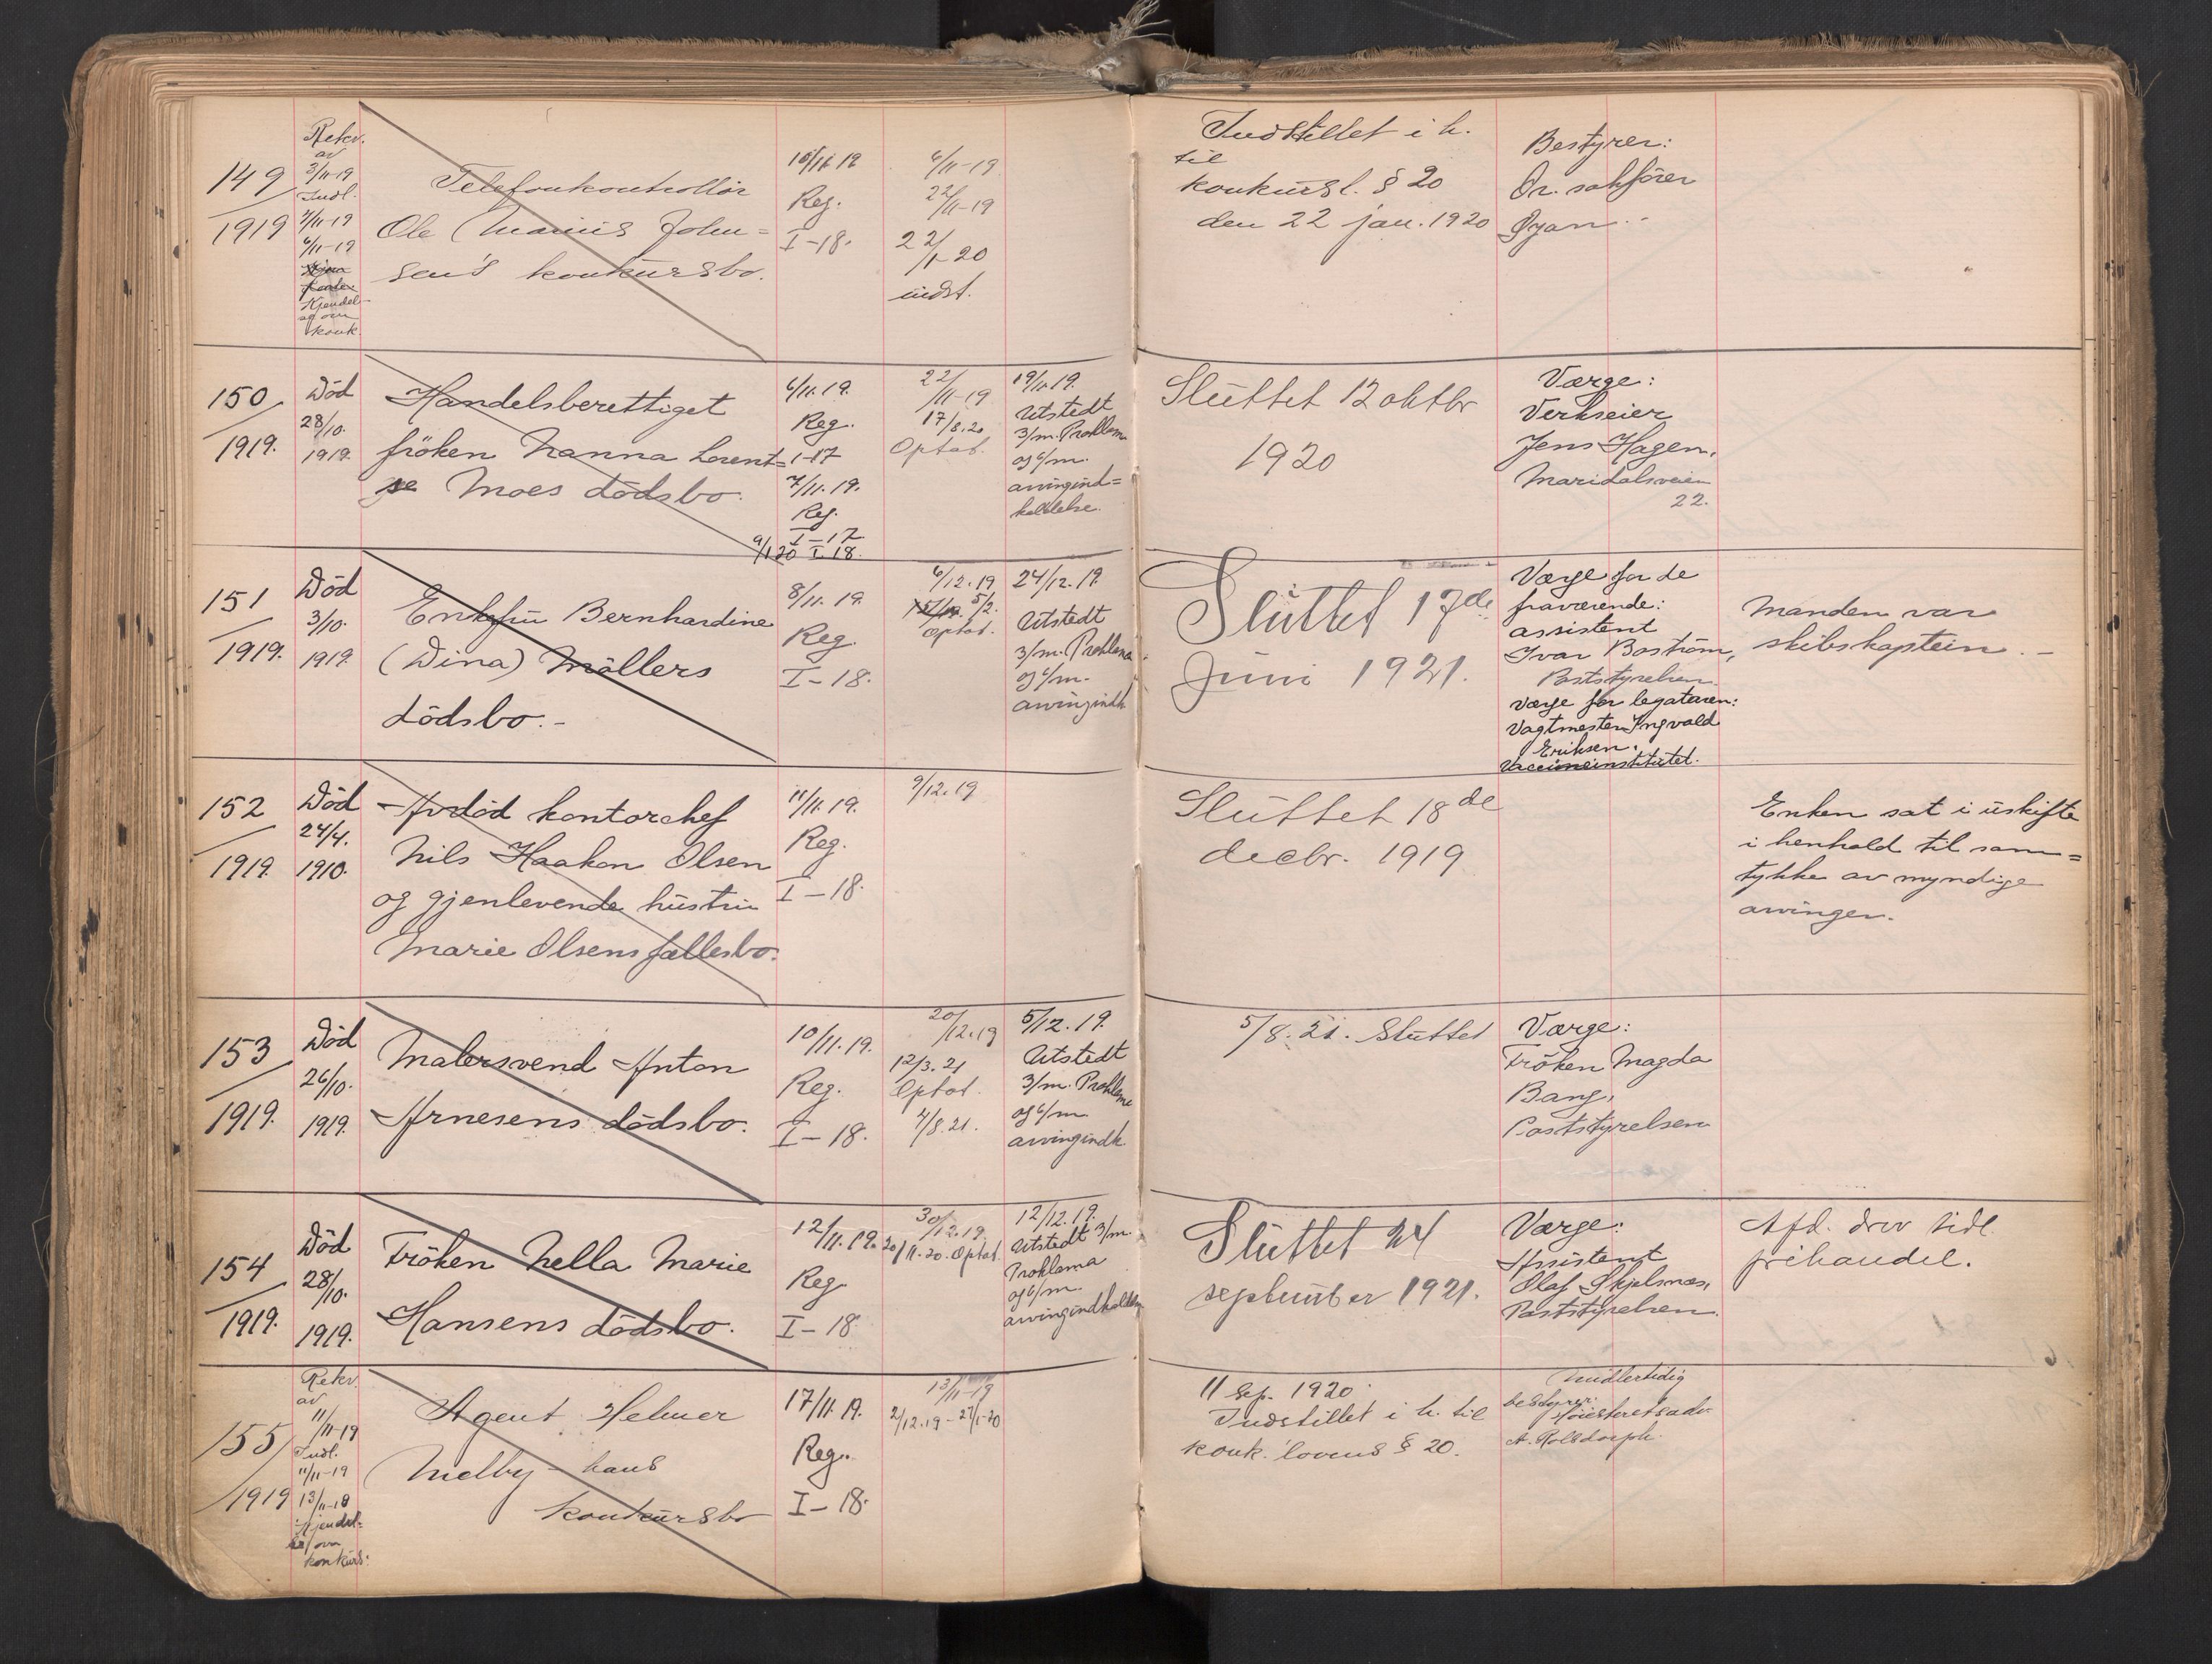 149
1919
Rekv.
av
3/11-19
Indl.
4/11-19
6/11-19
Kjendel-
se om
konk.
Telefonkontrollör
Ole Marius John=
sen's konkursbo.
10/11 19
Reg.
I-18.
6/11-19
22/11-19
22/1-20
indst.
Indstillet i h.
til
konkursl. § 20
den 22 jan. 1920
Bestyrer:
Or. sakförer
Gyan.-
150
1919.
Död
28/10.
1919.
Handelsberettiget
fröken Nanna Lorent=
se Moes dödsbo.
6/11.19.
Reg.
I-17
7/11.19.
Reg.
I-17
9/1 20 I 18.
22/11-19
17/8.20
Optat.
19/11.19.
Utstedt
3/m. Proklama
og 6/m.
arvingind=
kaldelse.
Sluttet 12 oktbr
1920
Værge:
Verkseier
Jens Hagen,
Maridalsveien
22.
151
1919.
Död
3/10.
1919.
Enkefru Bernhardine
(Dina) Möllers
dödsbo.-
8/11.19.
Reg.
I-18.
6/12.19
5/2.
Optat.
24/12.19.
Utstedt
3/m. Proklama
og 6/m.
arvingindk
Sluttet 17de
Juni 1921.
Værge for de
fraværende:
assistent
Ivar Boström,
Poststyrelsen.
Værge for legataren:
Vagtmester Ingvald
Eriksen,
Vaccineinstitutet.
Manden var
skibskaptein.-
152
1919.
Död
24/4.
1910.
Avdöd kontorchef
Nils Haakon Olsen
og gjenlevende hustru
Marie Olsens fællesbo.
11/11.19.
Reg.
I-18.
9/12.19
Sluttet 18de
decbr. 1919
Enken sat i uskifte
i henhold til sam=
tykke av myndige
arvinger.
153
1919.
Död
26/10.
1919.
Malersvend Anton
Arnesens dödsbo.
10/11.19.
Reg.
I-18.
20/12.19
12/3.21
Optat.
4/8.21.
5/12.19.
Utstedt
3/m. Proklama
og 6/m
arvingindk.
5/8.21. Sluttet
Værge:
Fröken Magda
Bang,
Poststyrelsen
154
1919.
Död
28/10.
1919.
Fröken Nella Marie
Hansens dödsbo.
12/11.19.
Reg
I-18
30/12.19.
20/11.20. Optat.
12/12.19.
Utstedt 3/m.
Proklama
og 6/m.
arvingindkaldelse
Sluttet 24
september 1921.
Værge:
Assistent
Olaf Skjelsnæs,
Poststyrelsen.
Afd. drev tidl.
prihandel.
155
1919
Rekv.
av
11/11-19
Indl.
11/11-19
13/11-18
Kjendel=
se om
konkurs.
Agent Helmer
Melby - hans
konkursbo
17/11 19.
Reg.
I-18.
13/11-19
2/12.19-27/1-20
11 sep. 1920
Indstillet i h. til
konk. lovens § 20.
Midlertidig
bestyrer:
Höiesteretsadv.
A. Rolsdorph.